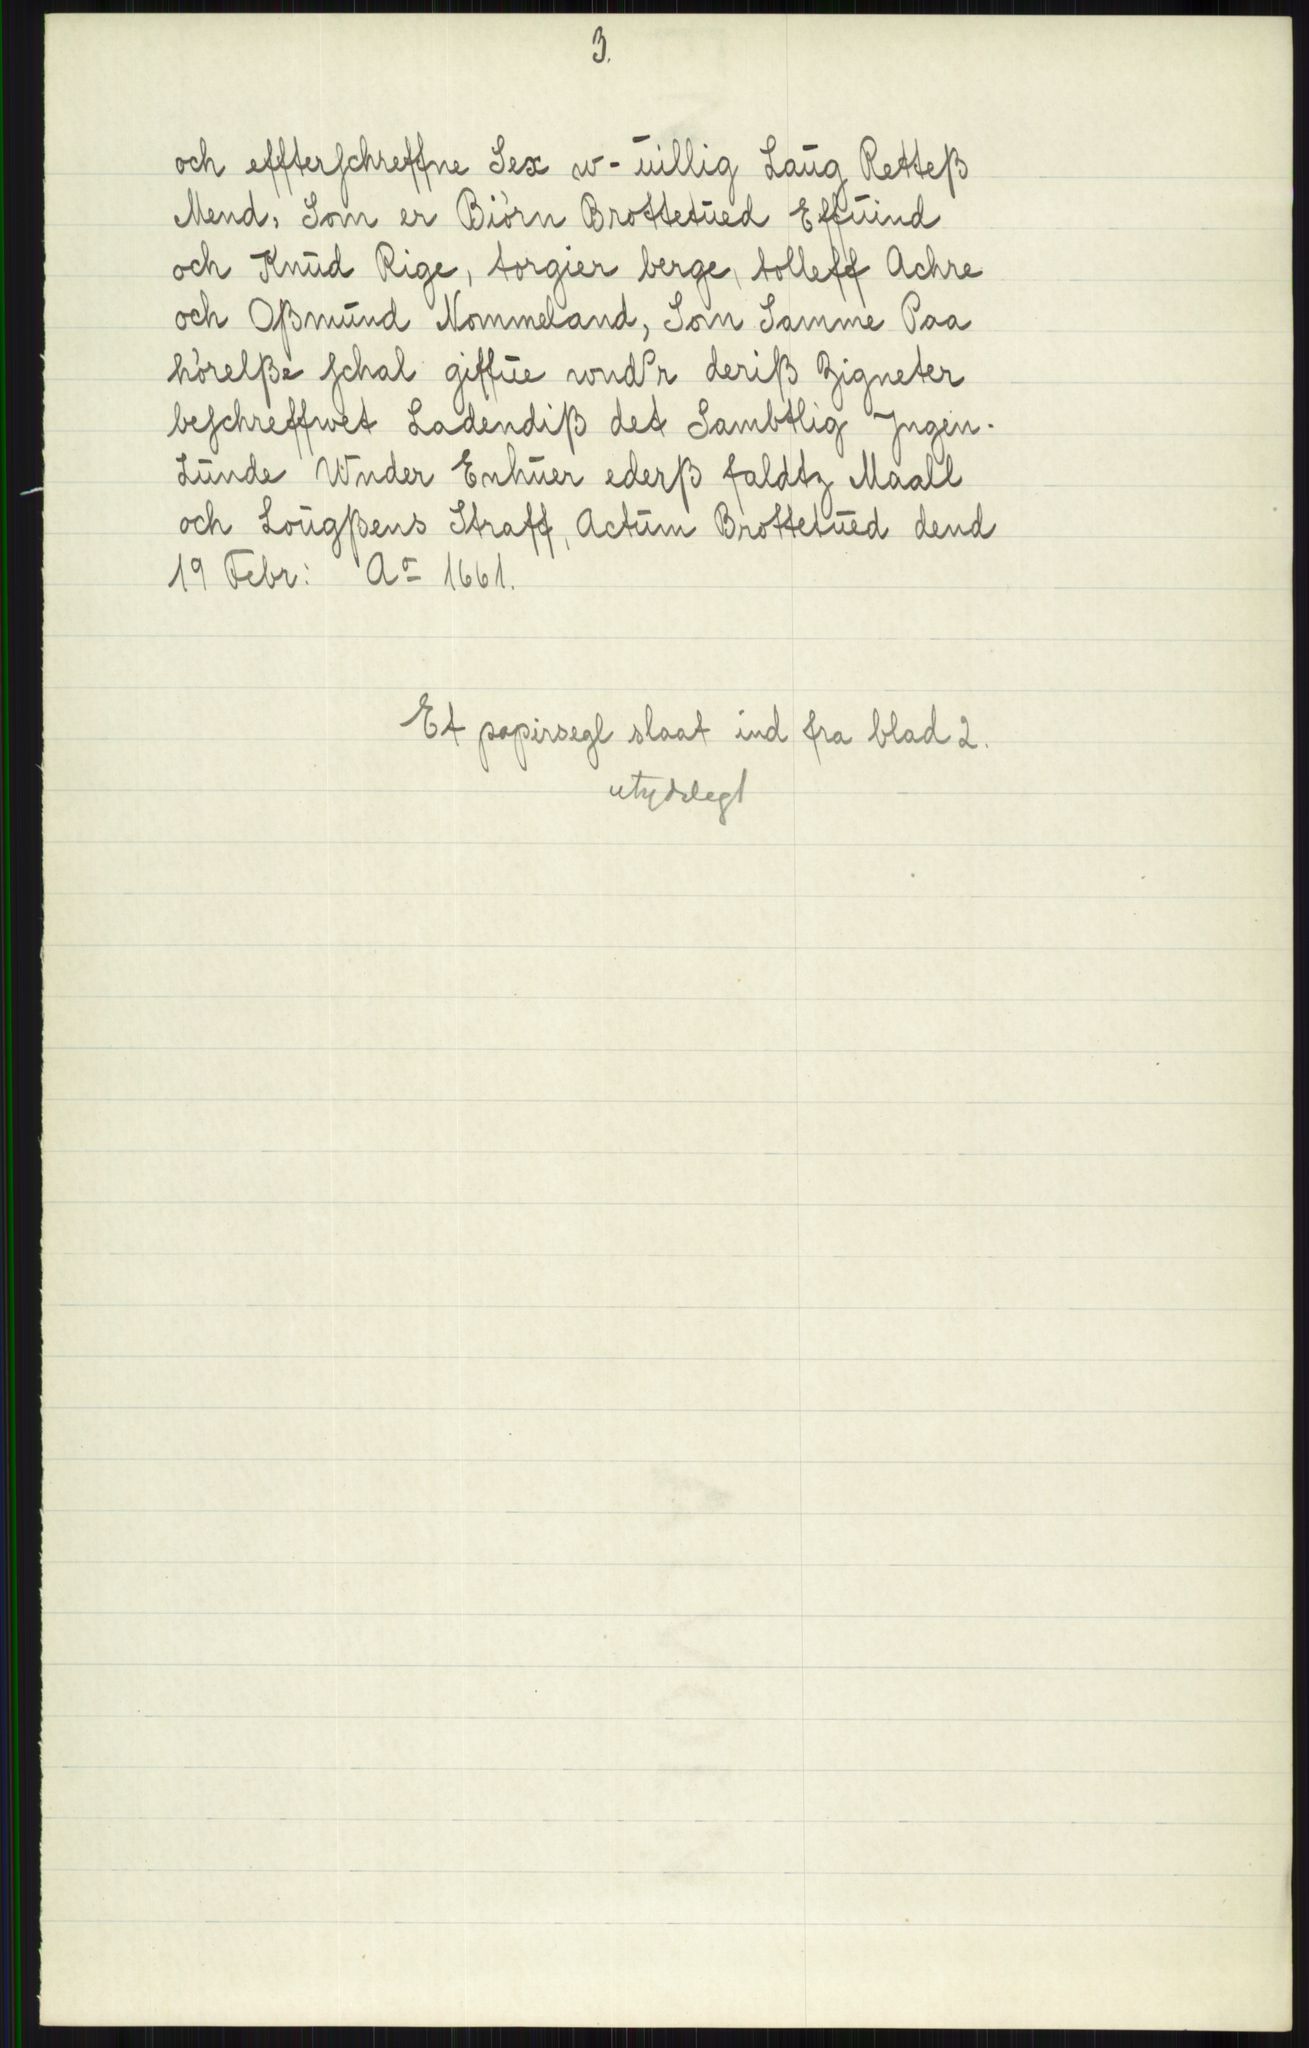 3.
och effterschreffne Sex w-ūillig Laūg Retteß
Mend, Som er Biörn Brottetūed Effūind
och Knūd Rige, torgier berge, tolleff Achre
och Oßmūnd Nommeland, Som Samme Paa
hörelße schal giffūe wnd'r deriß Zigneter
beschreffwet Ladendiß det Sambtlig Jngen-
Lūnde Wnder Enhūer ederß faldtz Maall
och Loūgßens Straff, Actūm Brottetūed dend
19 Febr: Ao 1661.
Et papirsegl slaat ind fra blad 2.
utydelegt